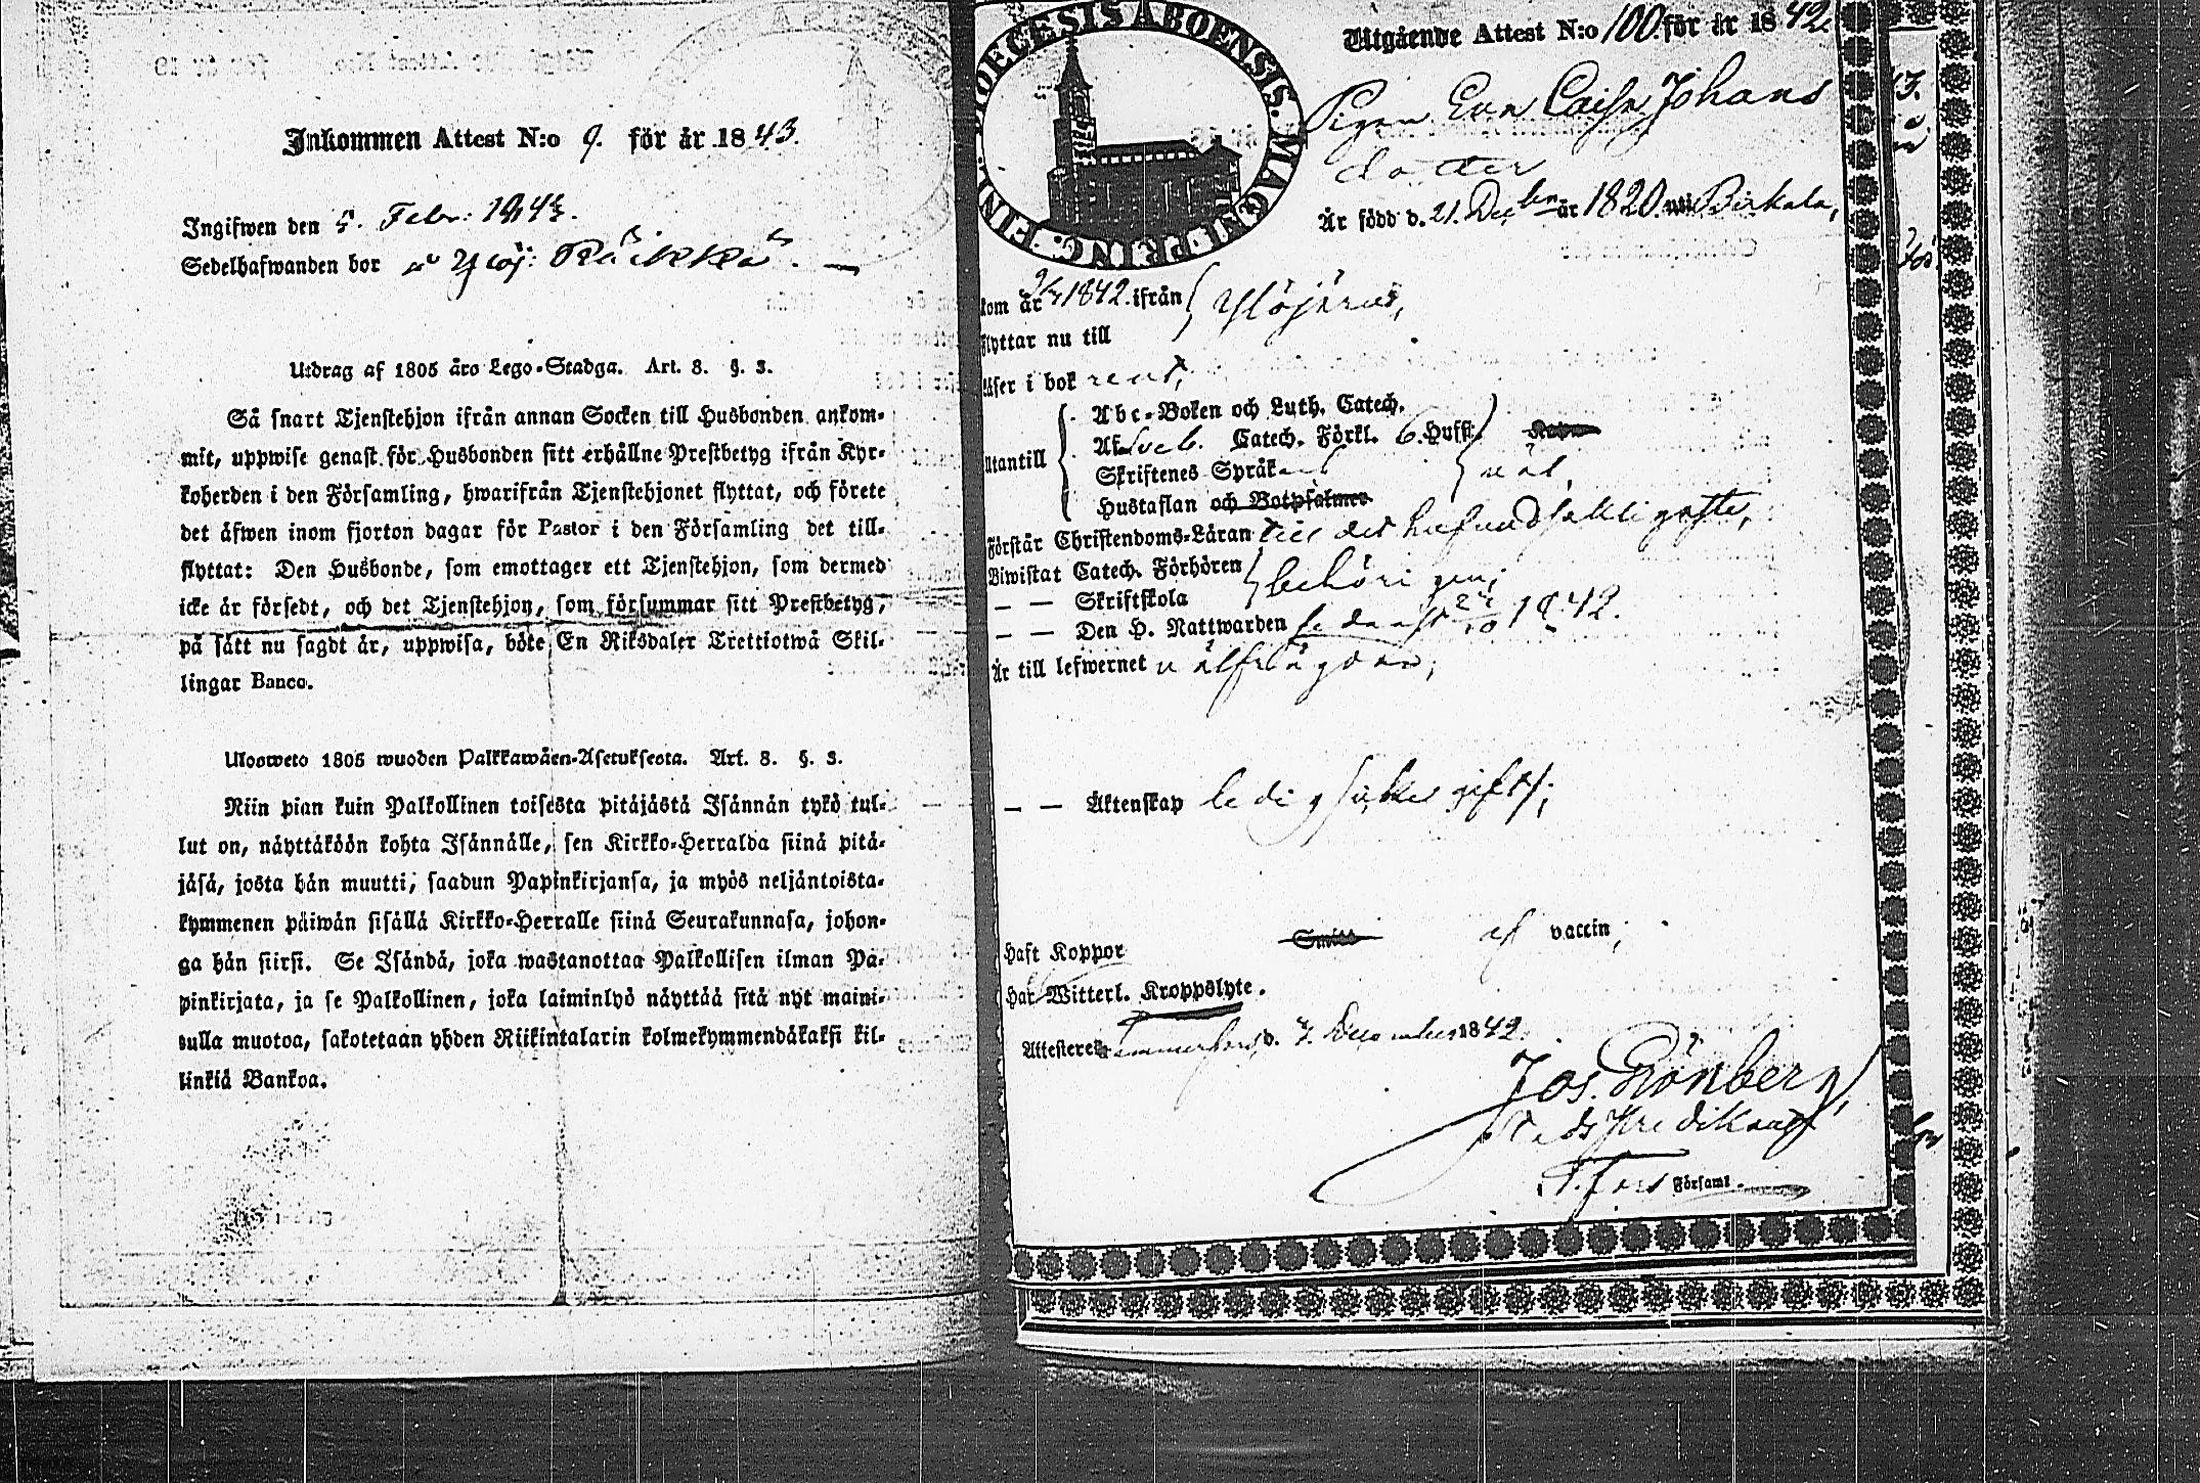 Inkommen Attest N:o 9. för år 1843.
Ingifwen den 5. Febr: 1843.
Sedelhafwanden bor Ylöj: Räikkä.
Utdrag af 1805 års Lego-Stadga. Art. 8. §. 3.
Så snart Tjenstehjon ifrån annan Socken till Husbonden ankom-
mit, uppwise genast för Husbonden sitt erhållne Prestbetyg ifrån Kyr-
koherden i den Församling, hwarifrån Tjenstehjonet flyttat, och förete
det äfwen inom fjorton dagar för Pastor i den Församling det till-
flyttat: Den Husbonde, som emottager ett Tjenstehjon, som dermed
icke är försedt, och det Tjenstehjon, som försummar sitt Prestbetyg,
på sätt nu sagdt är, uppwisa, böte En Riksdaler Trettiotwå Skil-
lingar Banco.
Ulosweto 1805 wuoden Palkkawäen-Asetuksesta. Art. 8. §. 3.
Niin pian kuin Palkollinen toisesta pitäjästä Isännän tykö tul-
lut on, näyttäköön kohta Isännälle, sen Kirkko-Herralda siinä pitä-
jäsä, josta hän muutti, saadun Papinkirjansa, ja myös neljäntoista-
kymmenen päiwän sisällä Kirkko-Herralle siinä Seurakunnasa, johon-
ga hän siirsi. Se Isändä, joka wastanottaa Palkollisen ilman Pa-
pinkirjata, ja se Palkollinen, joka laiminlyö näyttää sitä nyt maini-
tulla muotoa, sakotetaan yhden Riikintalarin kolmekymmendäkaksi kil-
linkiä Bankoa.
DIOECESIS ABOENSIS. MAGNI PRINC. FINL.
Utgående Attest N:o 100. för år 1842.
Pigan Eva Caisa Johans
dotter
Är född d. 21. Decbr år 1820 uti Birkala,
kom år 1842. ifrån Ylöjärvi,
flyttar nu till
läser i bok rent,
Utantill Abc-Boken och Luth. Catech.
Af Sveb. Catech. Förkl. 6. Hufst:
Skriftenes Språk väl,
Hustaflan och Botpsalmer
Förstår Christendoms-Läran till det hufvudsakligaste,
Biwistat Catech. Förhören behörigen;
— — Skriftskola
— — Den H. Nattwarden sednast 1842.
Är till lefwernet välfrägdad;
— — Äktenskap ledig
Haft Koppor af vaccin;
Har Witterl. Kroppslyte.
Attesteres Tammerfors, d. 7. December 1842.
Jos. Grönberg,
Stadspredikant
T.fors Församl.